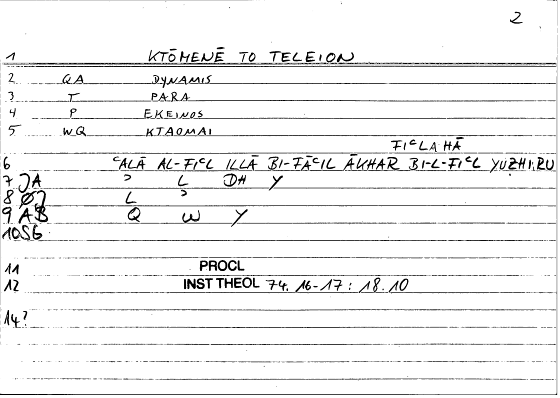 2
1 KTŌMENĒ TO TELEION
2 QA DYNAMIS
3 T PARA
4 P EKEINOS
5 WQ KTAOMAI
FIᶜLAHĀ
6 ᶜALĀ AL-FIᶜL ILLĀ BI-FĀᶜIL ĀKHAR BI-L-FIᶜL YUẒHIRU
7 JA ʾ L DH Y
8 L ʾ
9 AB Q W Y
10 SG
11 PROCL
12 INST THEOL 74. 16-17 : 18.10
14?